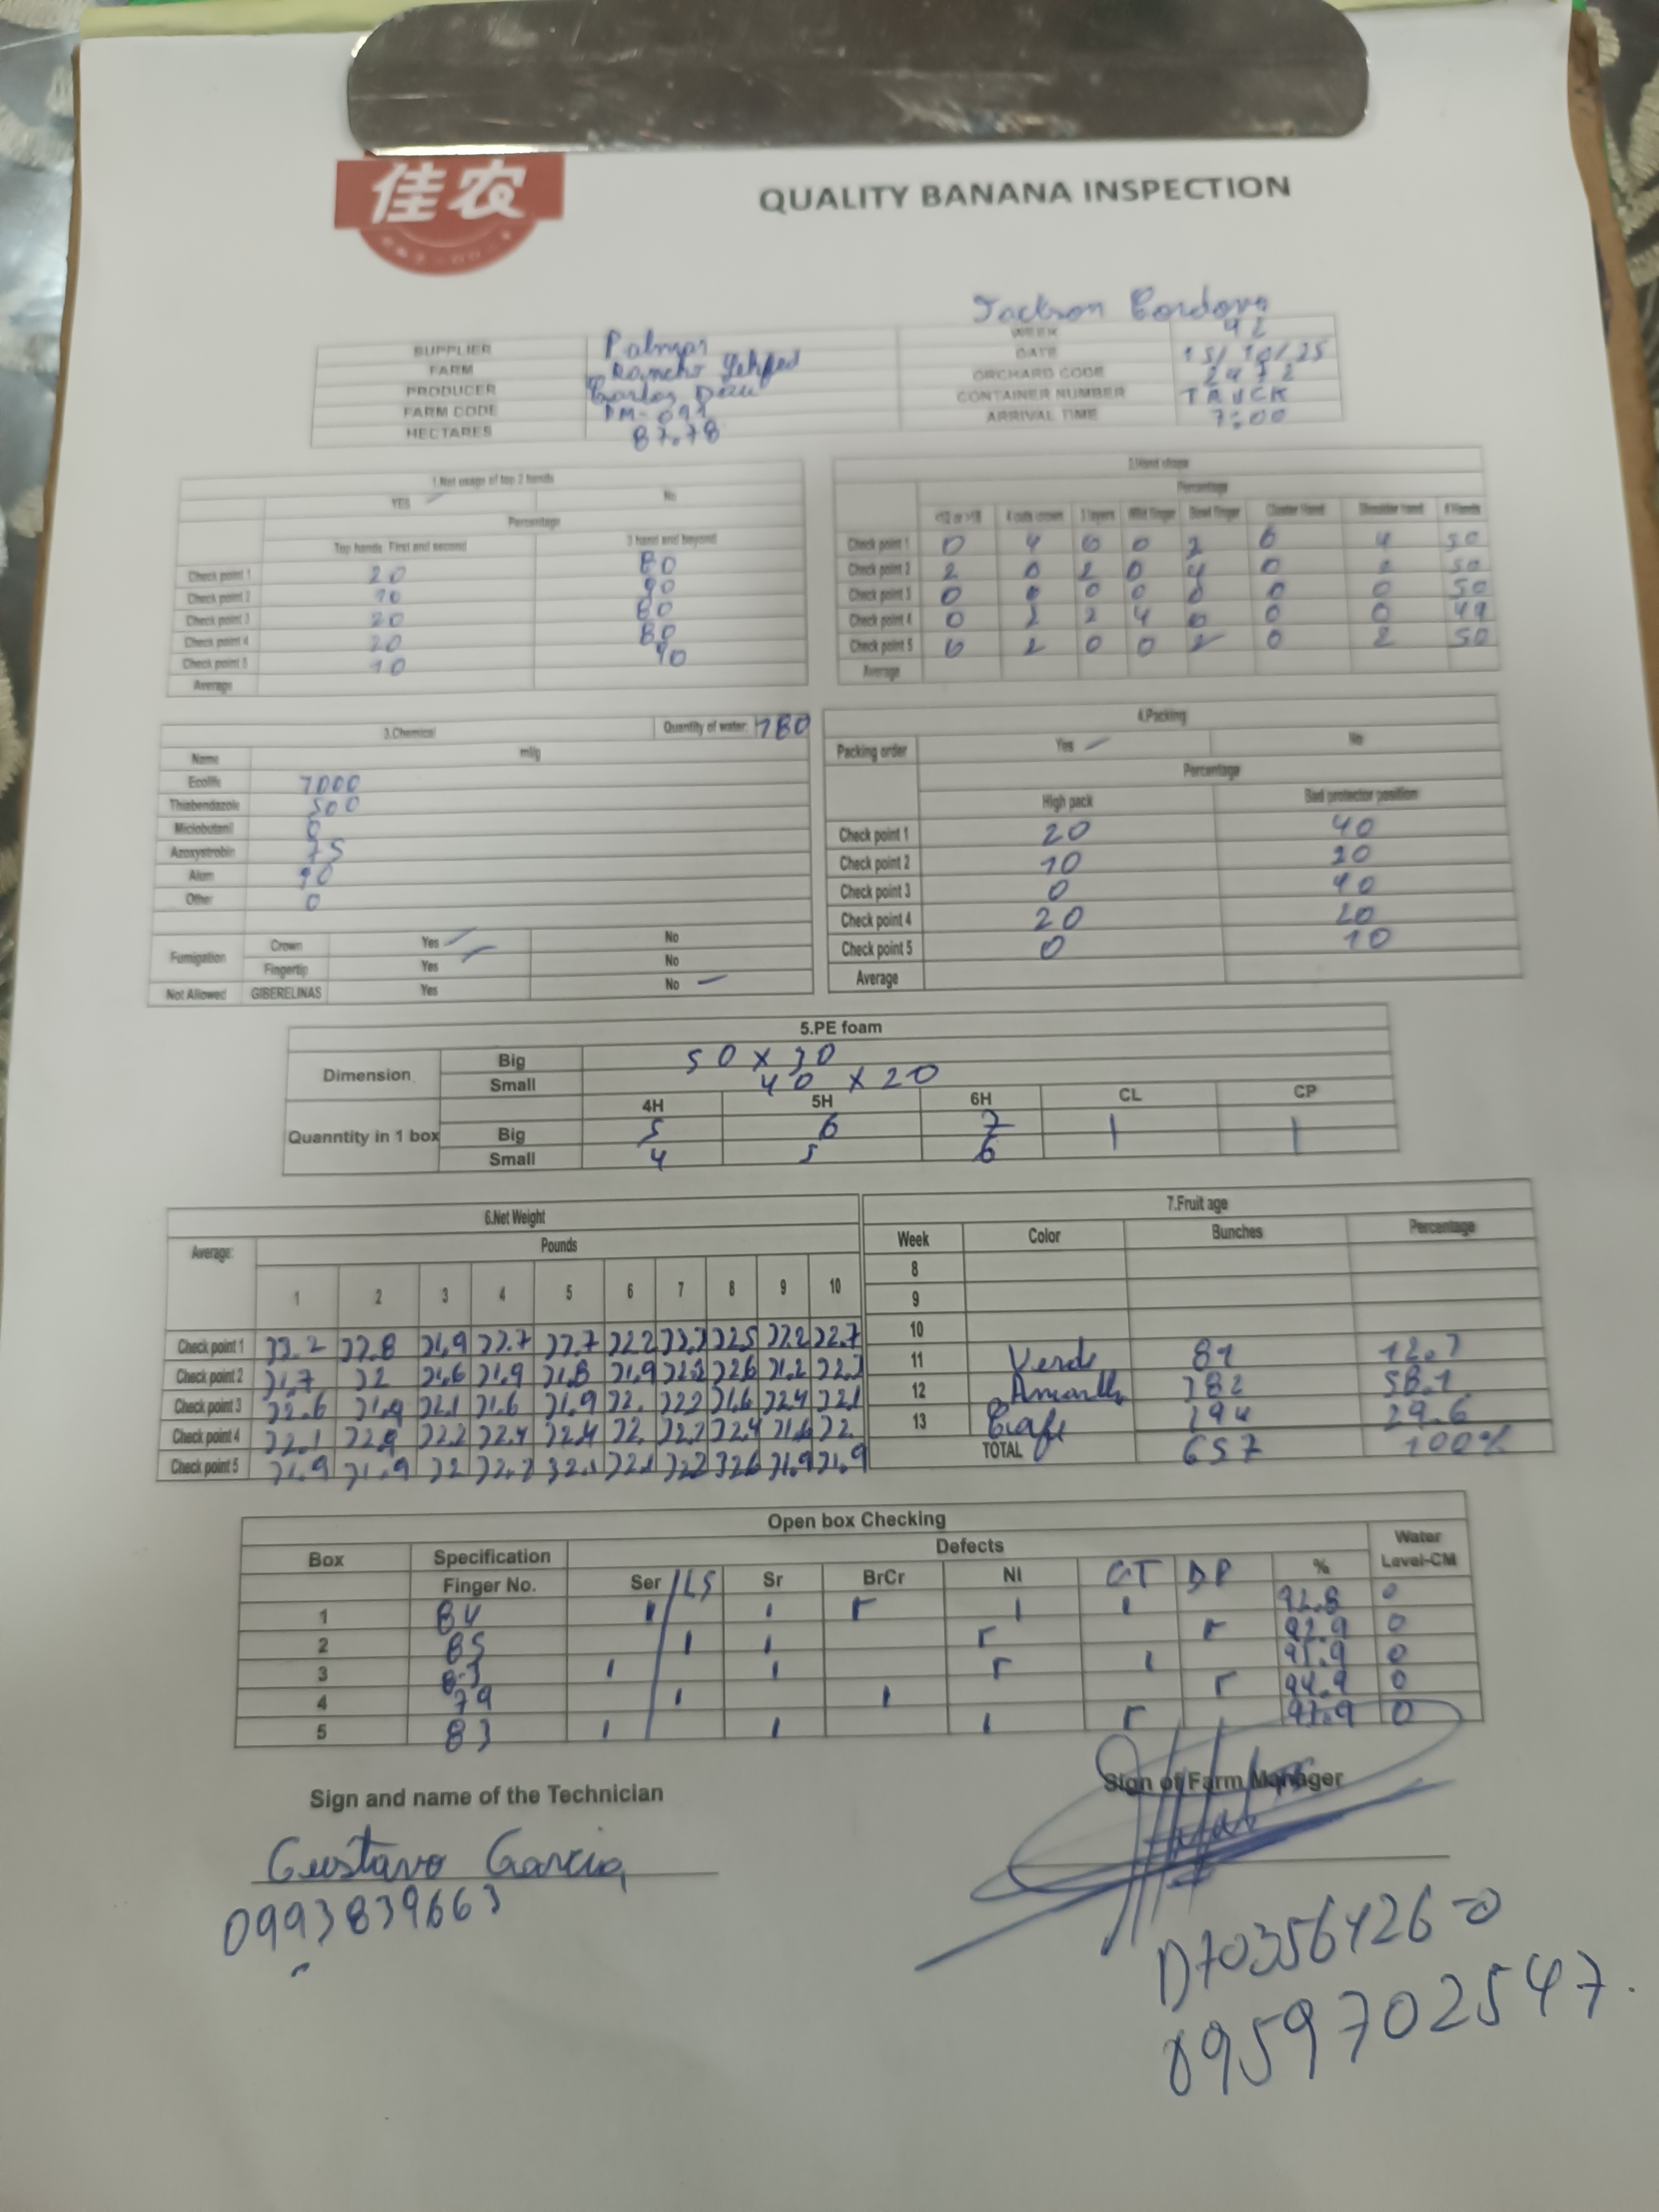 佳农
QUALITY BANANA INSPECTION
Jackson Cordova
SUPPLIER Palmar WEEK 42
FARM Rancho DATE 15/10/25
PRODUCER Carlos ORCHARD CODE 2472
FARM CODE CONTAINER NUMBER TRUCK
HECTARES 87.78 ARRIVAL TIME 7:00
1.Net usage of top 2 hands
YES No
Percentage
Top hands: First and second 3 hand and beyond
Check point 1 20 80
Check point 2 10 90
Check point 3 20 80
Check point 4 20 80
Check point 5 10 90
Average
2.Hand shape
Percentage
4 cuts crown 3 layers Cluster Hand Shoulder hand # Hands
Check point 1 0 4 0 0 2 0 4 50
Check point 2 2 0 2 0 4 0 2 50
Check point 3 0 0 0 0 0 0 0 50
Check point 4 0 2 2 4 0 0 0 49
Check point 5 0 2 0 0 2 0 2 50
Average
3.Chemical Quantity of water: 180
Name ml/g
Ecolife 1000
Thiabendazole 500
Miclobutanil 0
Azoxystrobin 75
Alum 90
Other 0
Fumigation Crown Yes No
Fingertip Yes No
Not Allowed GIBERELINAS Yes No
4.Packing
Packing order Yes No
Percentage
High pack Bad protector position
Check point 1 20 40
Check point 2 10 20
Check point 3 0 40
Check point 4 20 20
Check point 5 0 10
Average
5.PE foam
Dimension Big 50 x 30
Small 40 x 20
4H 5H 6H CL CP
Quanntity in 1 box Big 5 6 7
Small 4 5 6
6.Net Weight
Average: Pounds
1 2 3 4 5 6 7 8 9 10
Check point 1 22.2 22.8 21.9 22.7 22.7 22.2 22.5 22.2 22.7
Check point 2 21.7 22 21.6 21.9 21.8 21.9 22.2 22.6 21.2
Check point 3 22.6 21.9 22.1 21.6 21.9 22. 22.2 21.6 22.4 22.1
Check point 4 22.1 22.9 22.2 22.4 22.4 22. 22.2 22.4 21.6 22.
Check point 5 21.9 21.9 22 22.2 22.1 22.1 22.2 22.6 21.9 21.9
7.Fruit age
Week Color Bunches Percentage
8
9
10
11 Verde 81 12.3
12 Amarillo 382 58.1
13 Cafe 194 29.6
TOTAL 657 100%
Open box Checking
Box Specification Defects Water
Finger No. Ser / LS Sr BrCr NI GT DP % Level-CM
1 84 1 1 1 1 1 92.8 0
2 85 1 1 1 1 0
3 83 1 1 1 1 0
4 79 1 1 1 94.9 0
5 83 1 1 1 1 0
Sign and name of the Technician
Sign of Farm Manager
Gustavo Garcia
0993839663
070356426-0
0959702547.